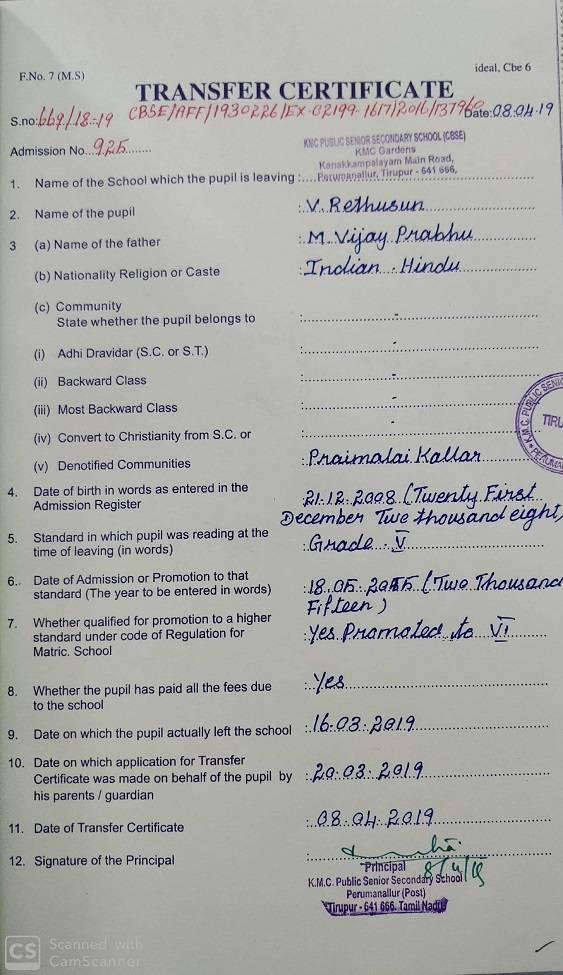 F.No. 7 (M.S)
ideal, Cbe 6
TRANSFER CERTIFICATE
S.no: 669/18-19 CBSE/AFF/1930226/EX-02199-1617/2016/ Date: 08.04.19
Admission No. 925
KMC PUBLIC SENIOR SECONDARY SCHOOL (CBSE)
KMC Gardens
Kanakkampalayam Main Road,
1. Name of the School which the pupil is leaving : Perumanallur, Tirupur - 641 666,
2. Name of the pupil : V. Rethusun
3 (a) Name of the father : M. Vijay Prabhu
(b) Nationality Religion or Caste : Indian - Hindu
(c) Community
State whether the pupil belongs to : -
(i) Adhi Dravidar (S.C. or S.T.) : -
(ii) Backward Class : -
(iii) Most Backward Class : -
(iv) Convert to Christianity from S.C. or : -
(v) Denotified Communities : Praimalai Kallar
K.M.C. PUBLIC SENIO
TIRU
PERUMA
4. Date of birth in words as entered in the
Admission Register : 21.12.2008 (Twenty First
December Two thousand eight)
5. Standard in which pupil was reading at the
time of leaving (in words) : Grade - V
6. Date of Admission or Promotion to that
standard (The year to be entered in words) : 18.05.2015 (Two Thousand
Fifteen)
7. Whether qualified for promotion to a higher
standard under code of Regulation for : Yes Promoted to VI
Matric. School
8. Whether the pupil has paid all the fees due : Yes
to the school
9. Date on which the pupil actually left the school : 16.03.2019
10. Date on which application for Transfer
Certificate was made on behalf of the pupil by : 20.03.2019
his parents / guardian
11. Date of Transfer Certificate : 08.04.2019
12. Signature of the Principal :
Principal 8/4/19
K.M.C. Public Senior Secondary School
Perumanallur (Post)
Tirupur - 641 666. Tamil Nadu
CS Scanned with
CamScanner